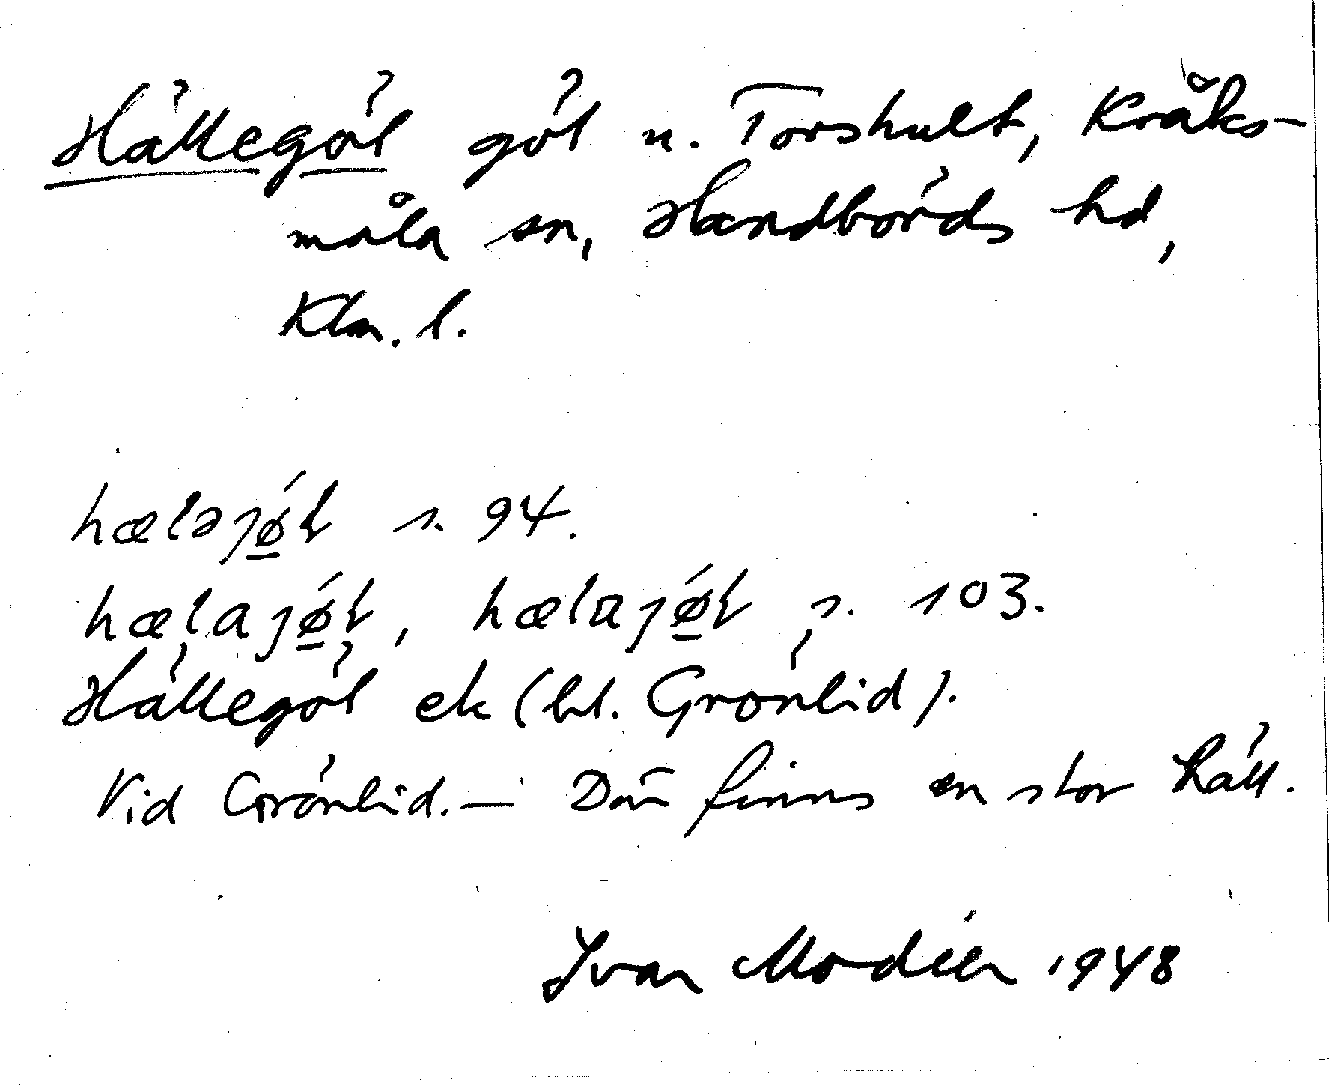 Hällegöl göl u. Torshult, Kråks-
måla sn, Handbörds hd,
Klm. l.
hæləjǿ̱ɫ s. 94.
hælajǿ̱ɫ, hælajǿ̱ɫ s. 103.
Hällegöl ek (bl. Grönlid).
Vid Grönlid. — Där finns en stor häll.
Ivar Modéer 1948